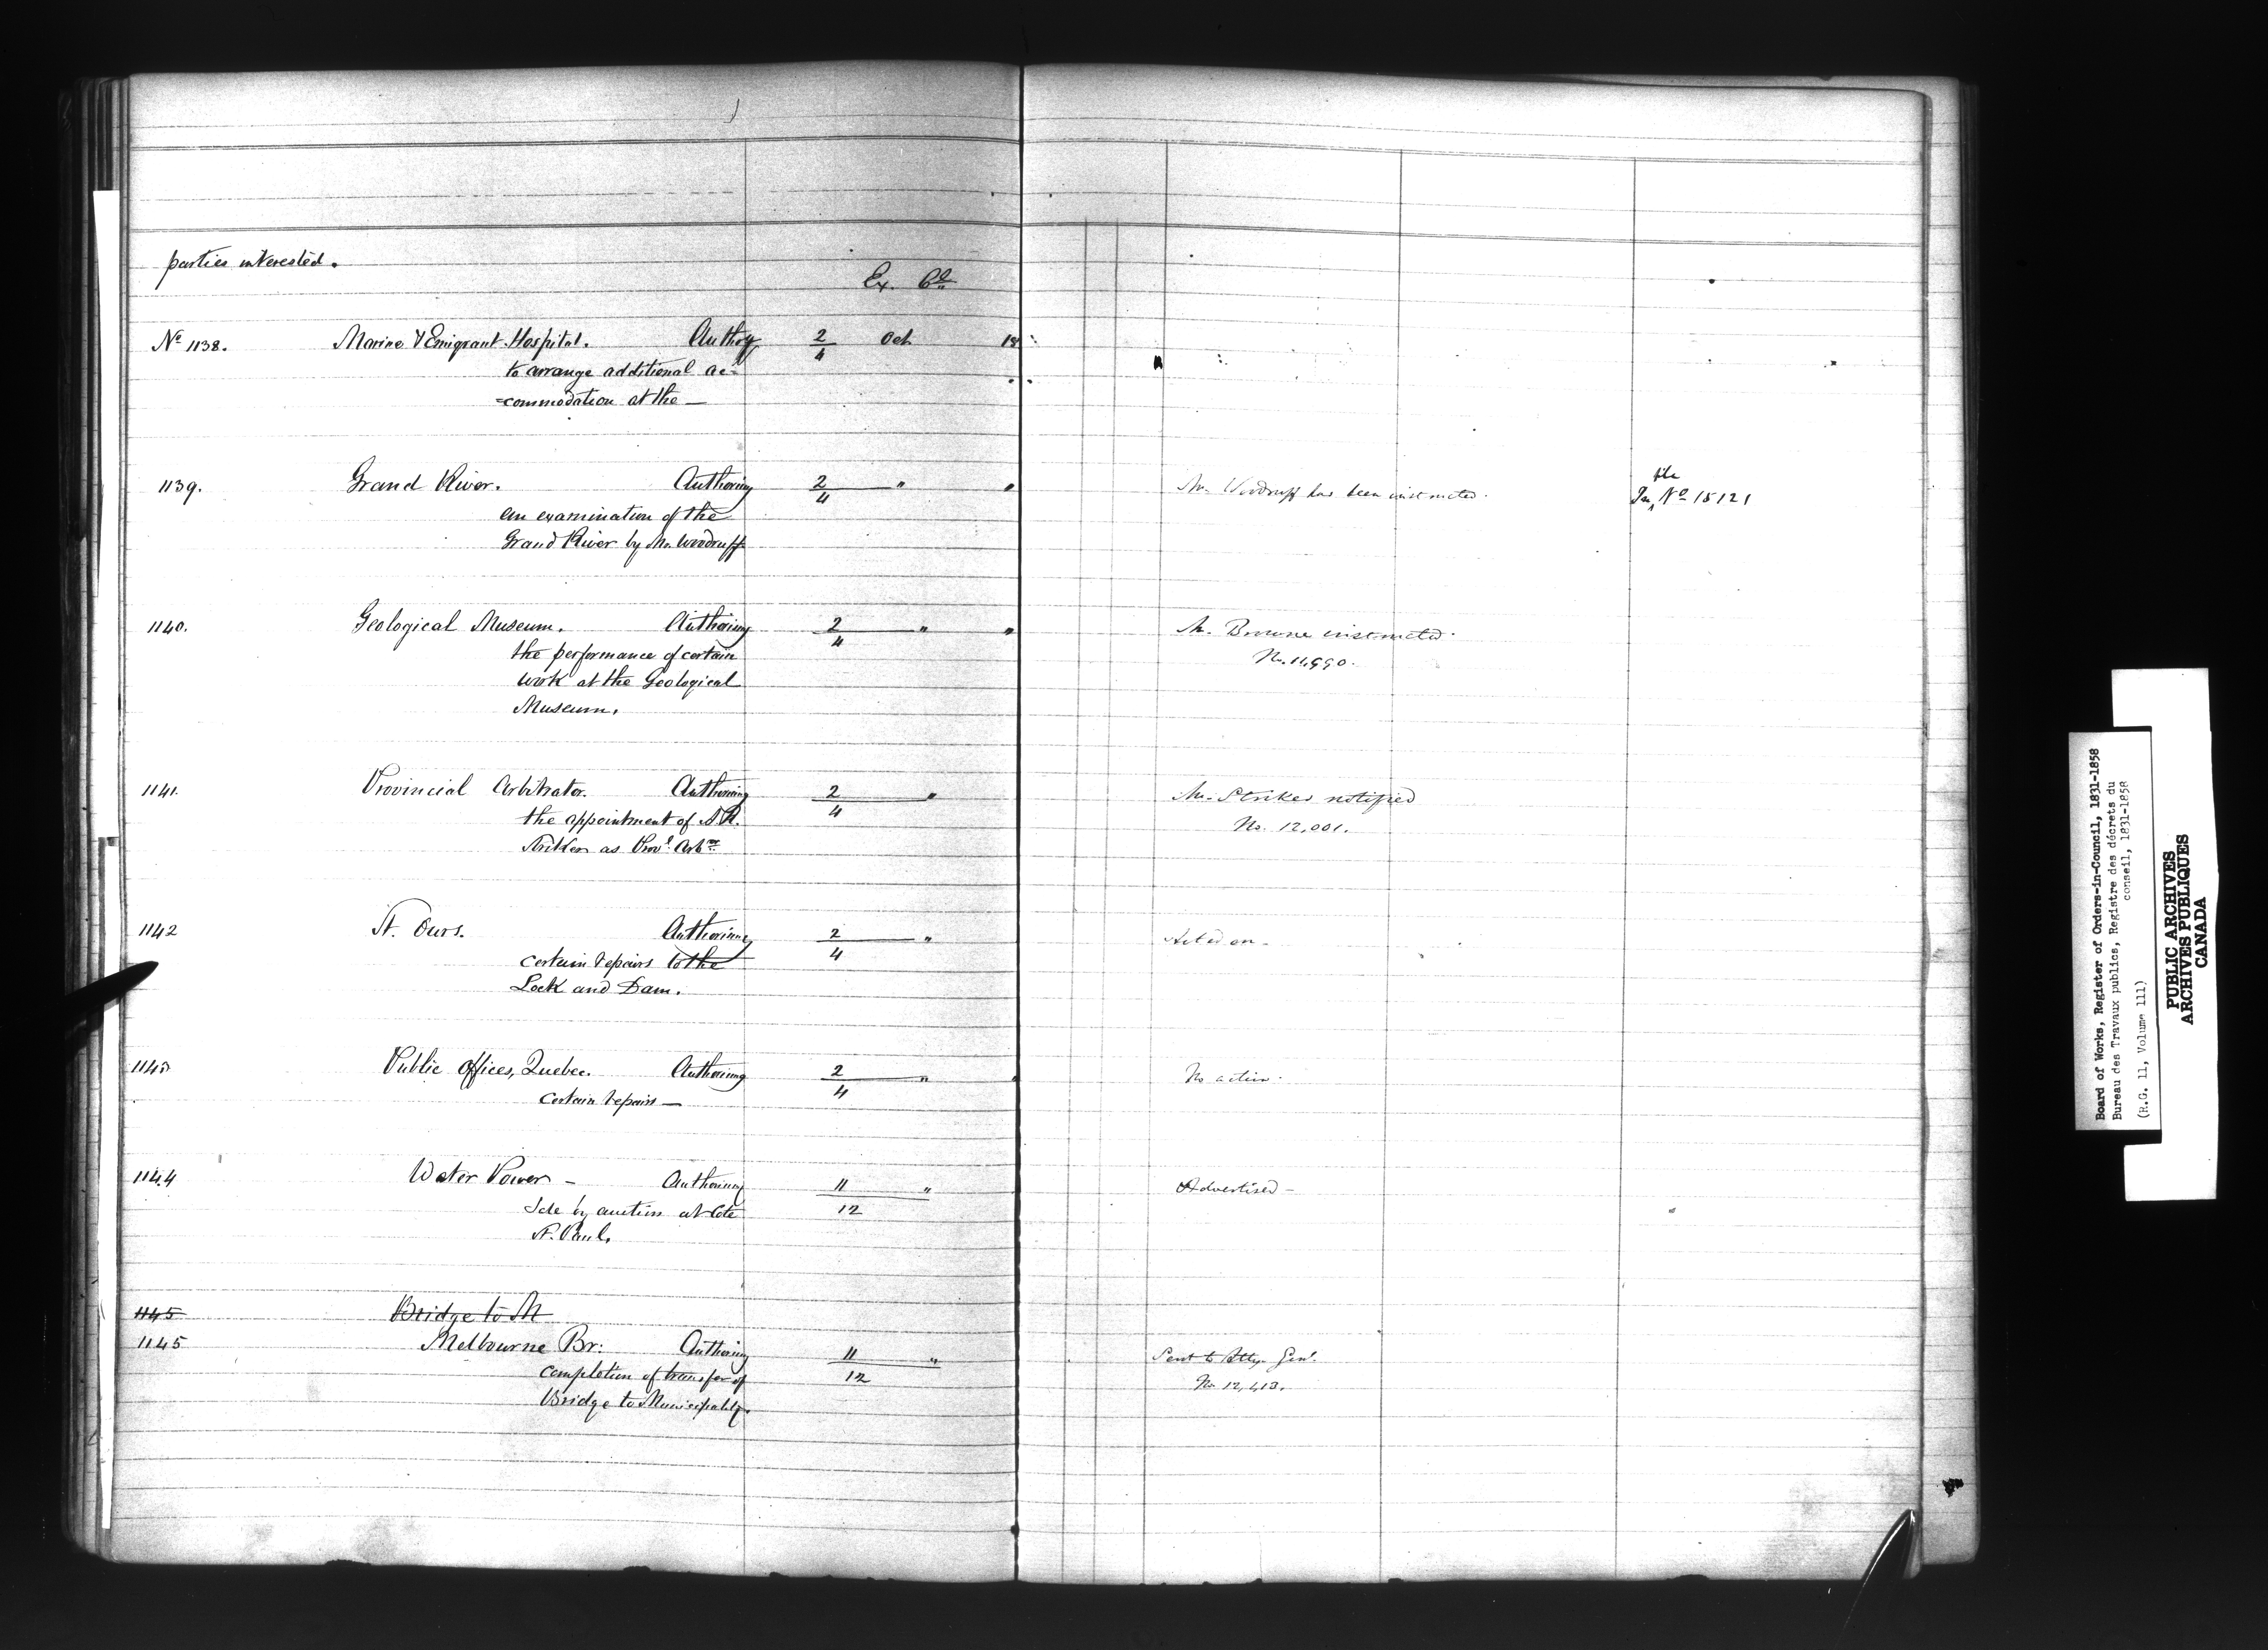 parties interested.
Ex. Cl
No 1138. Marine & Emigrant Hospital. Authorg 2/4 Oct 18
to arrange additional ac-
-commodation at the —
1139. Grand River. Authorizing 2/4 " " Mr. Woodruff has been instructed. In file No 15121
an examination of the
Grand River by Mr. Woodruff
1140. Geological Museum. Authorizing 2/4 " " Mr. Browne instructed.
the performance of certain No. 11,990.
work at the Geological
Museum.
1141. Provincial Arbitrator. Authorizing 2/4 " Mr. Striker notified
the appointment of A.R. No. 12,001.
Striker as Provl Arbtor
1142 St. Ours. Authorizing 2/4 " Acted on -
certain repairs to the
Lock and Dam.
1143 Public Offices, Quebec. Authorizing 2/4 " " No action.
certain repairs —
1144 Water Power - Authorizing 11/12 " Advertised -
Sale by auction at Cote
St. Paul.
1145 Bridge to M
1145 Melbourne Br: Authorizing 11/12 " Sent to Atty. Genl.
completion of transfer of No 12,413.
Bridge to Municipality.
Board of Works, Register of Orders-in-Council, 1831-1858
Bureau des Travaux publics, Registre des décrets du
conseil, 1831-1858
(R.G. 11, Volume 111)
PUBLIC ARCHIVES
ARCHIVES PUBLIQUES
CANADA